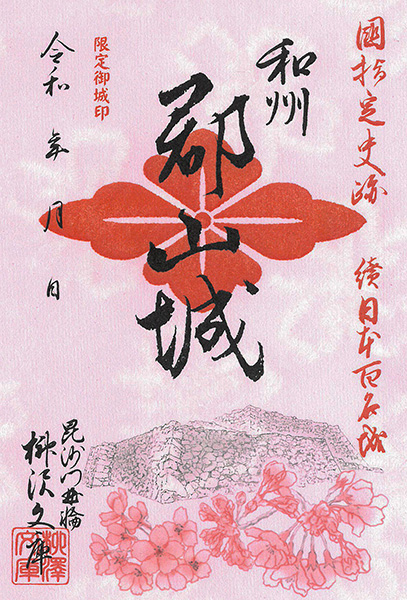 國指定史跡 續日本百名城
和州
郡山城
限定御城印
令和 年 月 日
毘沙門曲輪
柳沢文庫
柳澤文庫